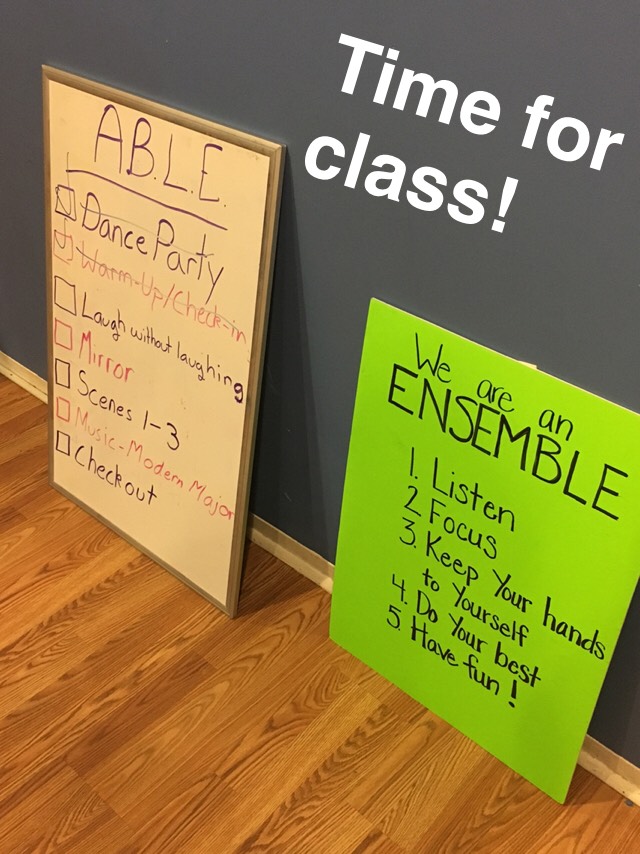 Time for
class!
A.B.L.E.
Dance Party
Warm-Up/Check-in
Laugh without laughing
Mirror
Scenes 1-3
Music-Modern Major
Checkout
We are an
ENSEMBLE
1. Listen
2 Focus
3. Keep Your hands
to Yourself
4. Do Your best
5. Have fun!